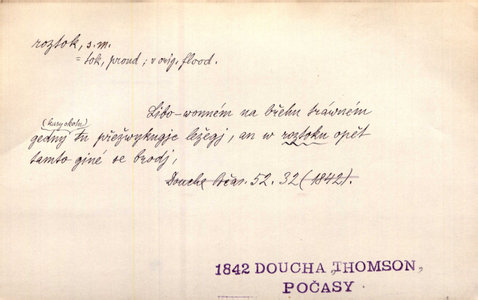 roztok, s.m.
= tok, proud; v orig. flood.
Libo-wonném na břehu tráwném
(kusy skotu)
gedny tu přežwykugjc ležegj, an w roztoku opět
tamto giné se brodj,
Doucha Počas. 52. 32 (1842).
1842 DOUCHA, THOMSON,
POČASY